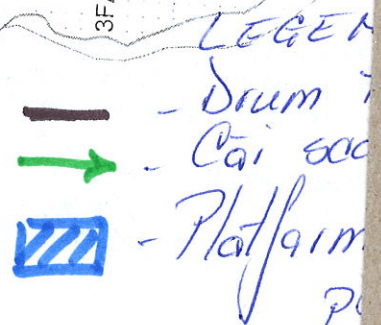 3F
LEGEN
- Drum
- Căi sco
- Platform
p